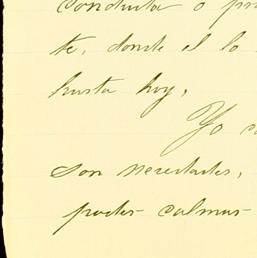 conducta o pr
te, donde el lo
hasta hoy,
Yo c
son necesitados,
poder calmar